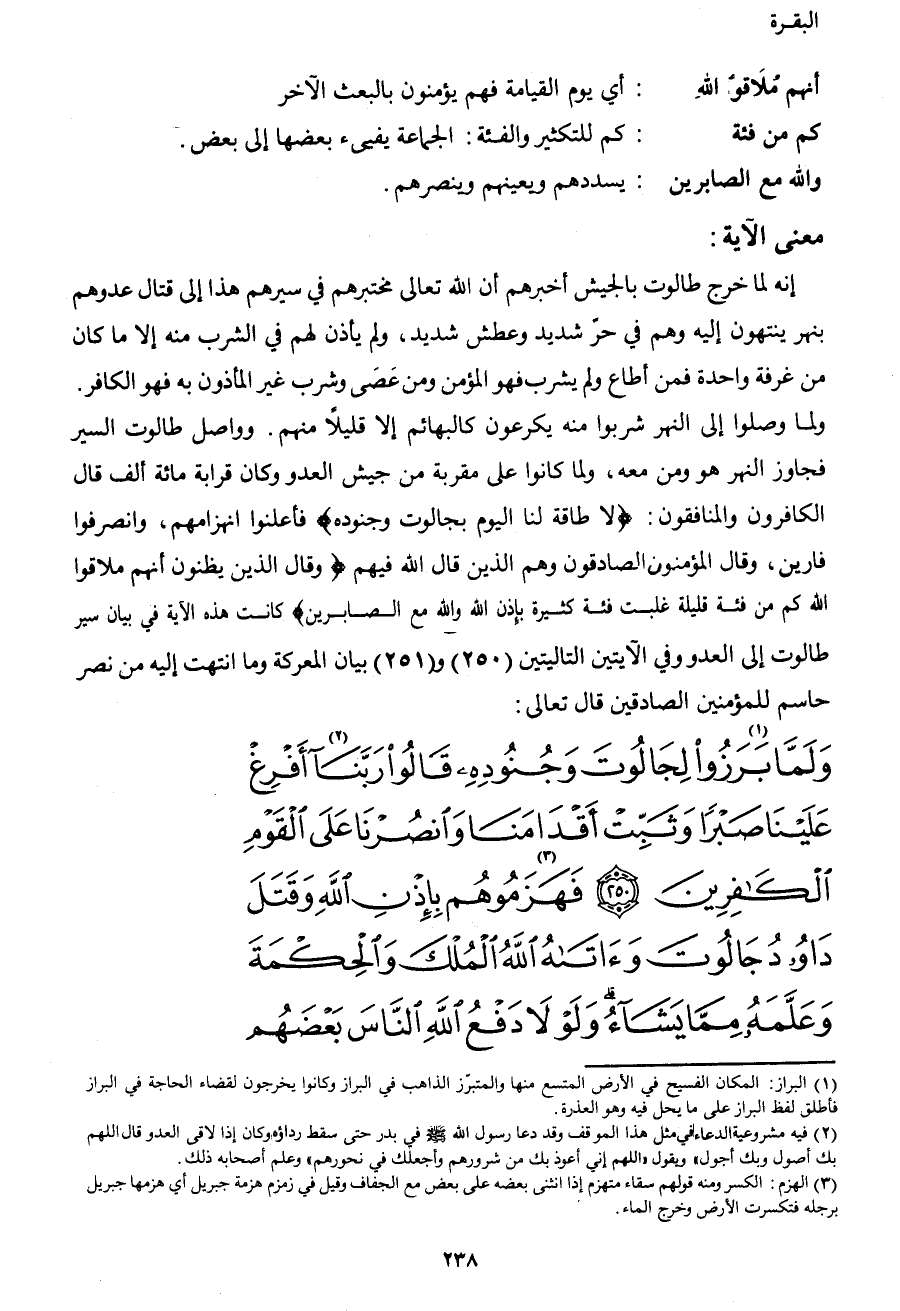 البقـرة
أنهم مُلَاقوُ اللهِ : أي يوم القيامة فهم يؤمنون بالبعث الآخر
كم من فئة : كم للتكثير والفـئة : الجماعة يفيىء بعضها إلى بعض .
والله مع الصابرين : يسددهم ويعينهم وينصرهم .
معنى الآية :
إنه لما خرج طالوت بالجيش أخبرهم أن الله تعالى مختبرهم في سيرهم هذا إلى قتال عدوهم
بنهر ينتهون إليه وهم في حرّ شديد وعطش شديد، ولم يأذن لهم في الشرب منه إلا ما كان
من غرفة واحدة فمن أطاع ولم يشرب فهو المؤمن ومن عَصَى وشرب غير المأذون به فهو الكافر .
ولمـا وصلوا إلى النهر شربوا منه يكرعون كالبهائم إلا قليلًا منهم . وواصل طالوت السير
فجاوز النهر هو ومن معه، ولما كانوا على مقربة من جيش العدو وكان قرابة مائة ألف قال
الكافرون والمنافقون : ﴿لا طاقة لنا اليوم بجالوت وجنوده﴾ فأعلنوا انهزامهم، وانصرفوا
فارين، وقال المؤمنون الصادقون وهم الذين قال الله فيهم ﴿ وقال الذين يظنون أنهم ملاقوا
الله كم من فئـة قليلة غلبت فئـة كثيرة بإذن الله والله مع الـصـابـرين﴾ كانـت هذه الآية في بيان سير
طالوت إلى العدو وفي الآيتين التاليتين (٢٥٠) و(٢٥١) بيان المعركة وما انتهت إليه من نصر
حاسم للمؤمنين الصادقين قال تعالى :
وَلَمَّا بَرَزُواْ(١) لِجَالُوتَ وَجُنُودِهِۦ قَالُواْ رَبَّنَآ(٢) أَفْرِغْ
عَلَيْنَا صَبْرًا وَثَبِّتْ أَقْدَامَنَا وَٱنصُرْنَا عَلَى ٱلْقَوْمِ
ٱلْكَٰفِرِينَ ٢٥٠ فَهَزَمُوهُم(٣) بِإِذْنِ ٱللَّهِ وَقَتَلَ
دَاوُۥدُ جَالُوتَ وَءَاتَىٰهُ ٱللَّهُ ٱلْمُلْكَ وَٱلْحِكْمَةَ
وَعَلَّمَهُۥ مِمَّا يَشَآءُۗ وَلَوْلَا دَفْعُ ٱللَّهِ ٱلنَّاسَ بَعْضَهُم
(١) البراز: المكان الفسيح في الأرض المتسع منها والمتبرّز الذاهب في البراز وكانوا يخرجون لقضاء الحاجة في البراز
فأطلق لفظ البراز على ما يحل فيه وهو العذرة .
(٢) فيه مشروعية الدعاء في مثل هذا الموقف وقد دعا رسول الله ﷺ في بدر حتى سقط رداؤه وكان إذا لاقى العدو قال اللهم
بك أصول وبك أجول» ويقول «اللهم إني أعوذ بك من شرورهم وأجعلك في نحورهم» وعلم أصحابه ذلك .
(٣) الهزم : الكسر ومنه قولهم سقاء متهزم إذا انثنى بعضه على بعض مع الجفاف وقيل في زمزم هزمة جبريل أي هزمها جبريل
برجله فتكسرت الأرض وخرج الماء .
٢٣٨